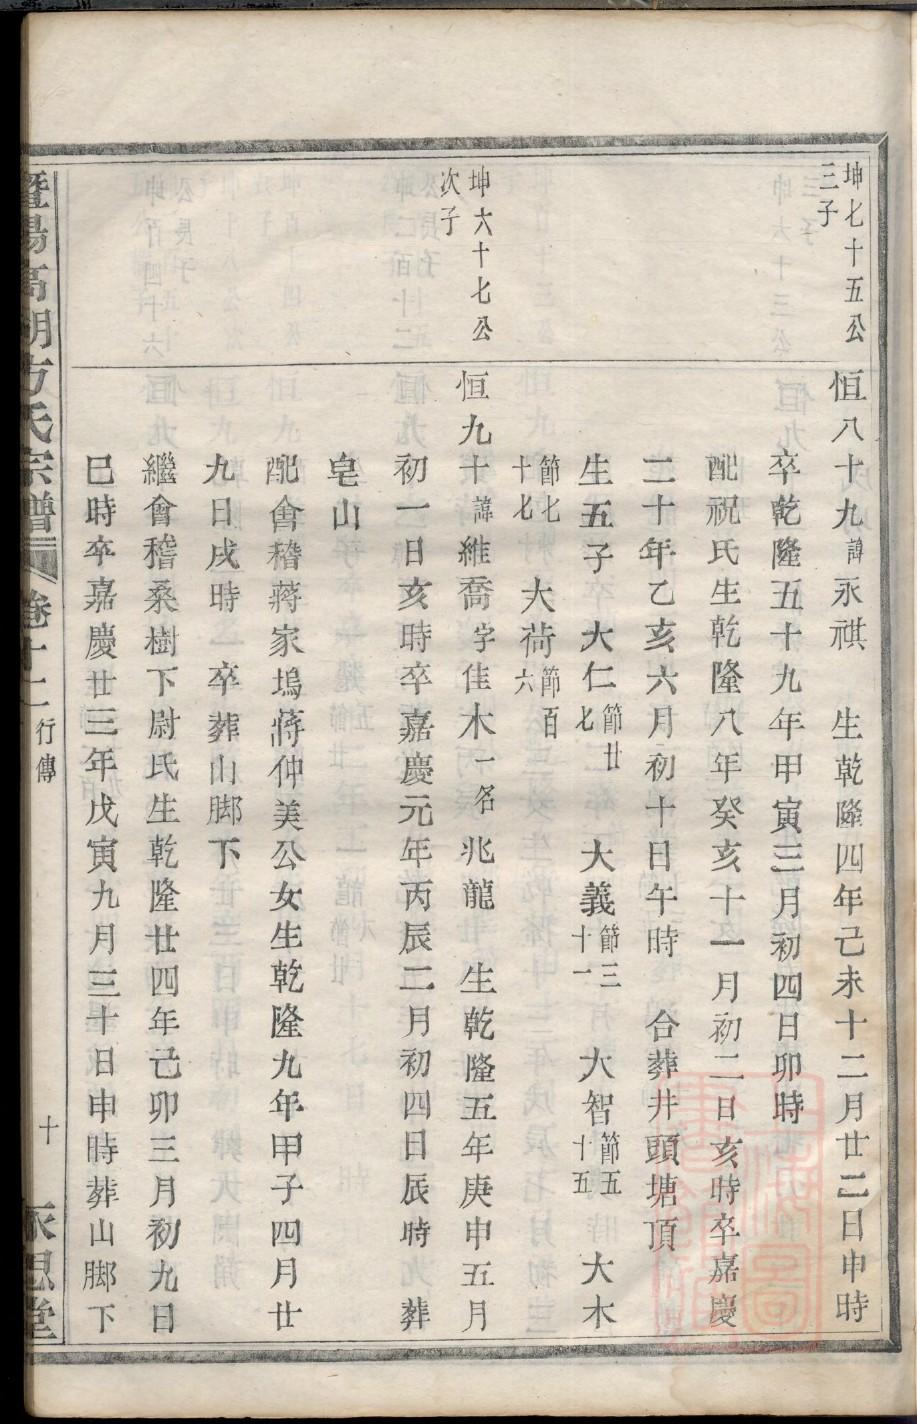 坤七十五公
三子
恒八十九諱永祺 生乾隆四年己未十二月廿二日申時
卒乾隆五十九年甲寅三月初四日卯時
配祝氏生乾隆八年癸亥十一月初二日亥時卒嘉慶
二十年乙亥六月初十日午時 合葬井頭塘頂
生五子大仁節廿七 大義節三十一 大智節五十五 大木
節七十七 大荷節百六
坤六十七公
次子
恒九十諱維喬字佳木一名兆龍 生乾隆五年庚申五月
初一日亥時卒嘉慶元年丙辰二月初四日辰時 葬
皂山
配會稽蔣家塢蔣仲美公女生乾隆九年甲子四月廿
九日戌時 卒葬山脚下
繼會稽桑樹下尉氏生乾隆廿四年己卯三月初九日
巳時卒嘉慶廿三年戊寅九月三十日申時葬山脚下
暨陽高湖方氏宗譜 卷十二 行傳 十 永思堂